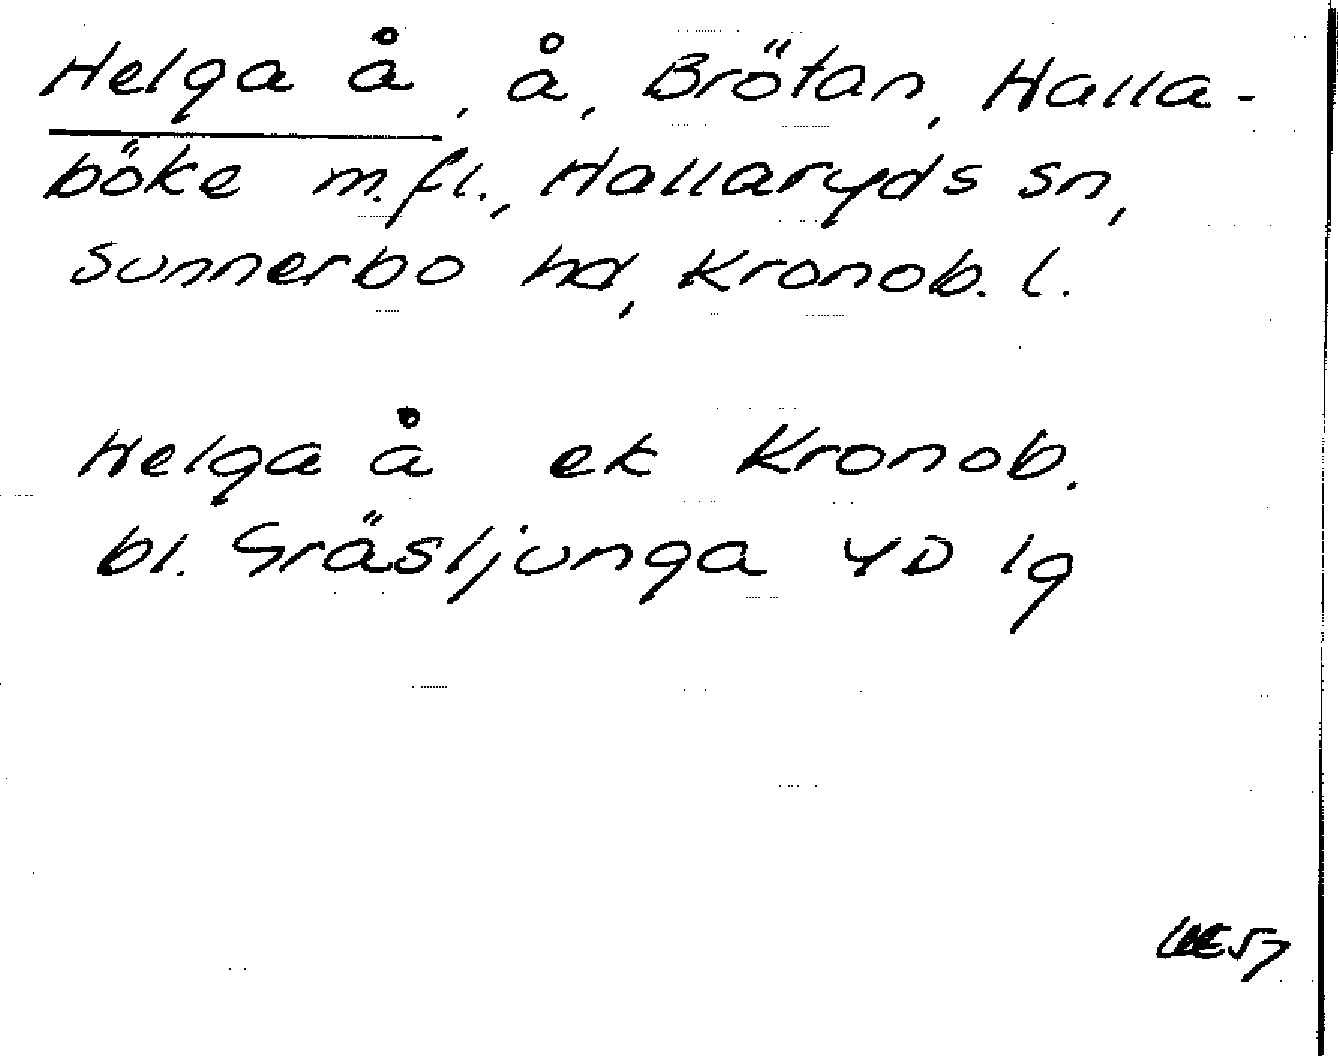 Helga å, å, Brötan, Halla-
böke m.fl., Hallaryds sn,
Sunnerbo hd, Kronob. l.
Helga å ek Kronob.
bl. Gräsljunga 4D lg